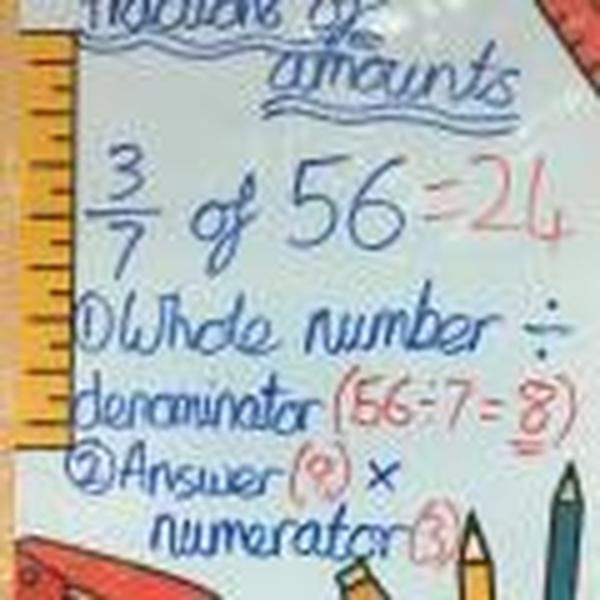 fractions of
amounts
3/7 of 56 = 24
① Whole number ÷
denominator (56÷7=8)
② Answer (8) ×
numerator (3)